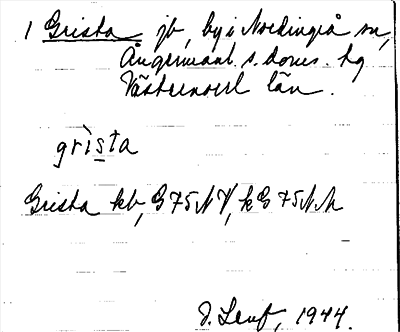 1 Grista jb, by i Nordingrå sn,
Ångermanl. s. doms. hg
Västernorrl län.
grista
Grista kb, G 75 N V, kG 75 N.M
D. Lauf, 1944.